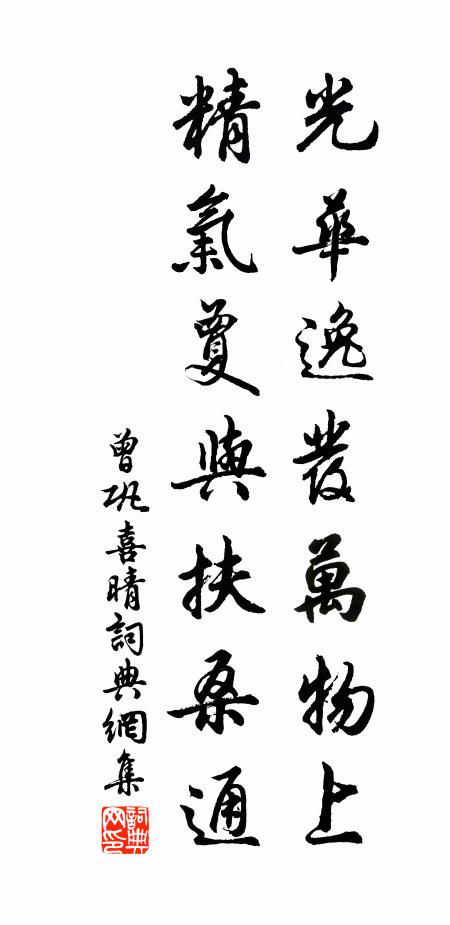 光華逸發萬物上
精氣夐與扶桑通
曾巩喜晴詞典網集
詞典网印